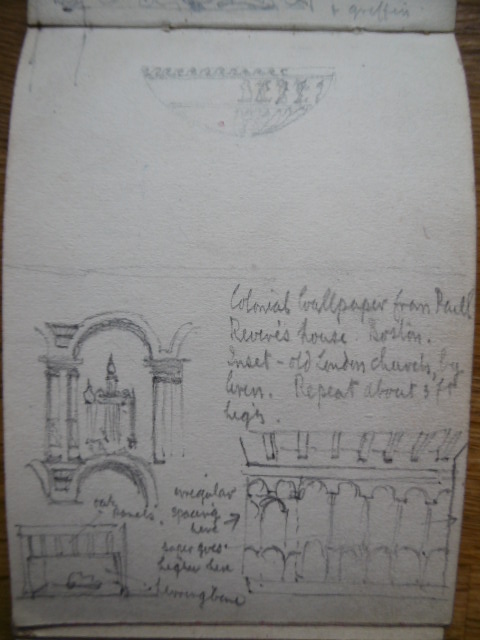 & griffin
Colonial Wallpaper from Paul
Revere's house. Boston.
Inset - old London church, by
Wren. Repeat about 3 ft
high.
panels.
irregular
spacing
here
higher here
herringbone